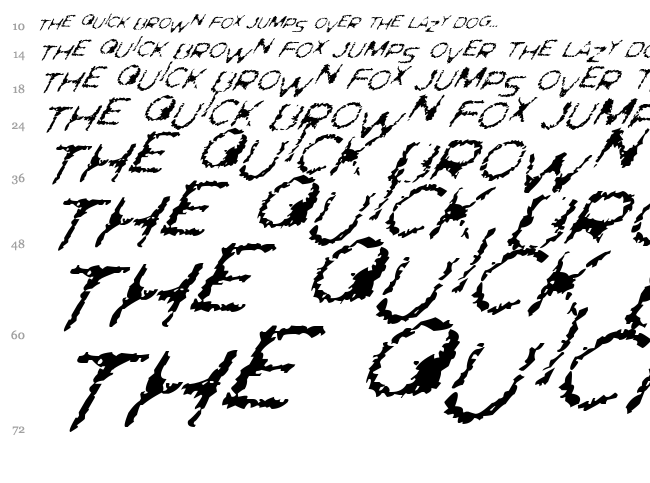 10 THE QUICK BROWN FOX JUMPS OVER THE LAZY DOG...
14 THE QUICK BROWN FOX JUMPS OVER THE LAZY DO
18 THE QUICK BROWN FOX JUMPS OVER T
24 THE QUICK BROWN FOX JUMP
36 THE QUICK BROWN
48 THE QUICK BRO
60 THE QUICK
72 THE QUIC